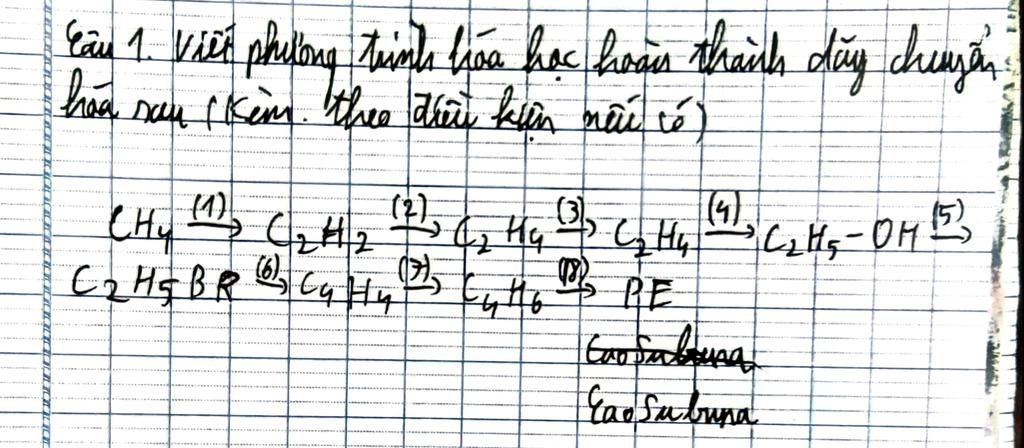 Câu 1. Viết phương trình hóa học hoàn thành dãy chuyển
hóa sau (Kèm. theo điều kiện nếu có)
CH4 (1)→ C2H2 (2)→ C2H4 (3)→ C2H4 (4)→ C2H5-OH (5)→
C2H5BR (6)→ C4H4 (7)→ C4H6 (8)→ PE
Caosubuna
Caosubuna